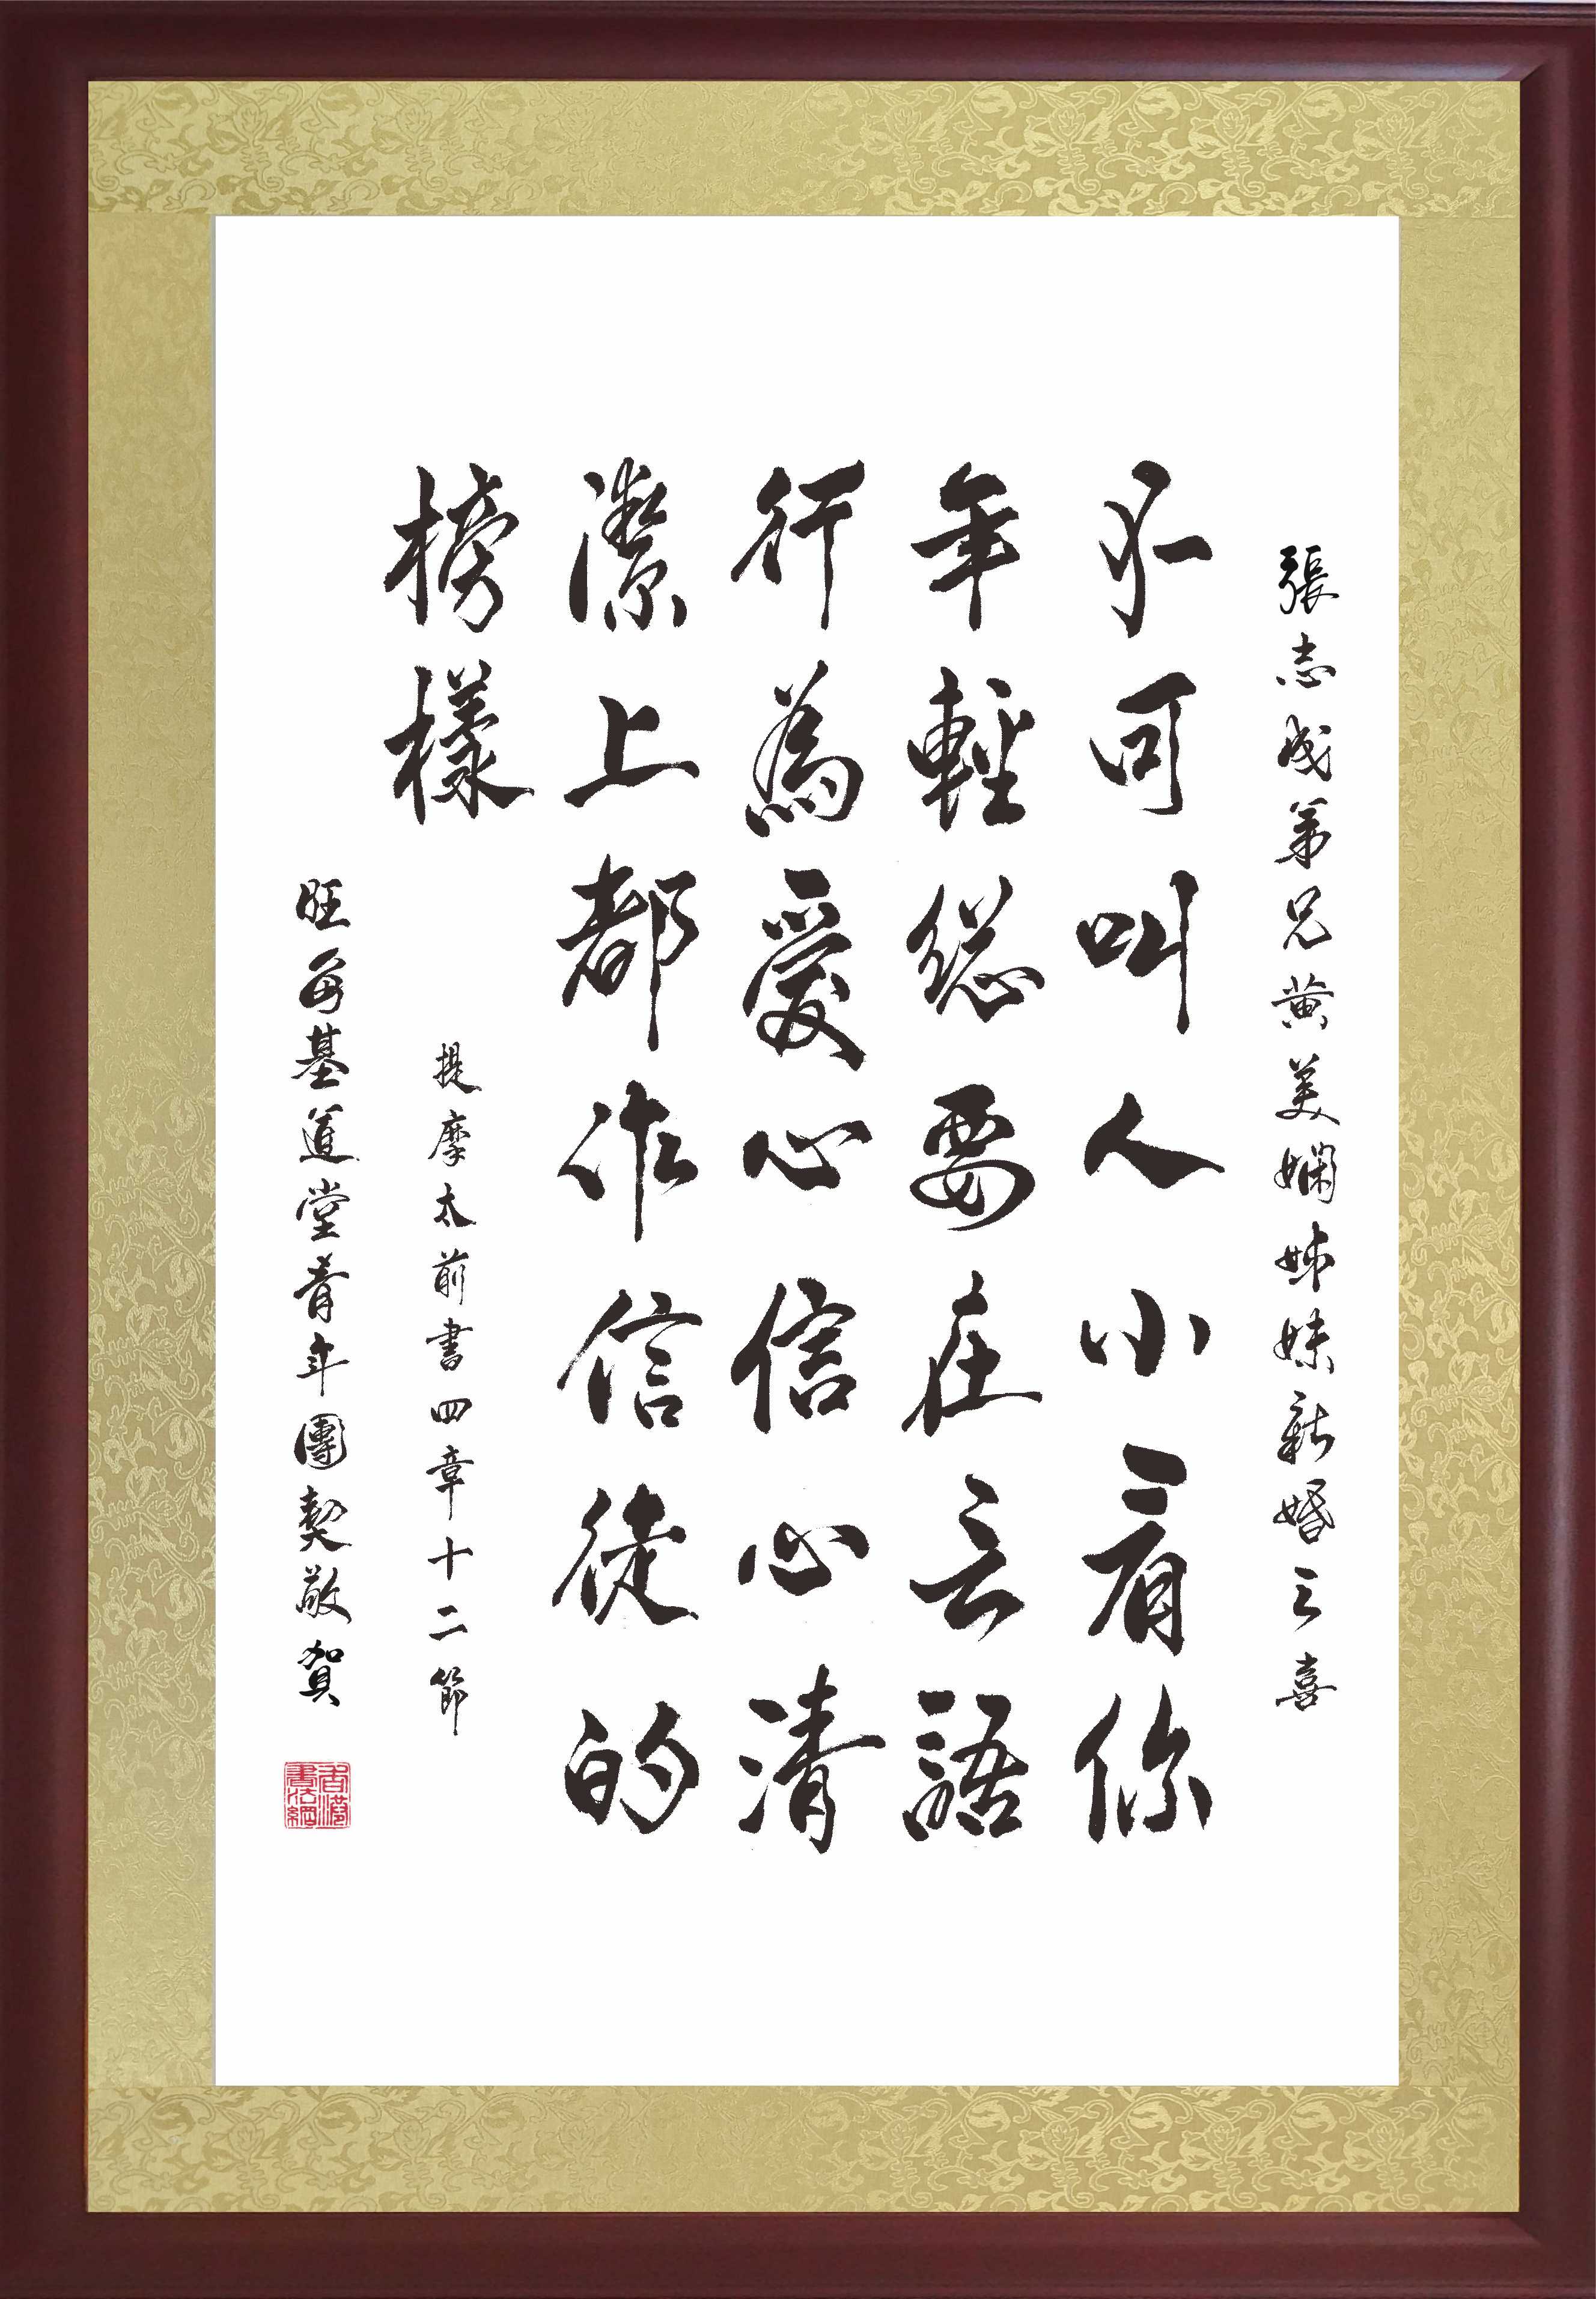 張志成弟兄黄美嫻姊妹新婚之喜
不可叫人小看你
年輕總要在言語
行為愛心信心清
潔上都作信徒的
榜樣
提摩太前書四章十二節
旺角基道堂青年團契敬賀
香港書法網